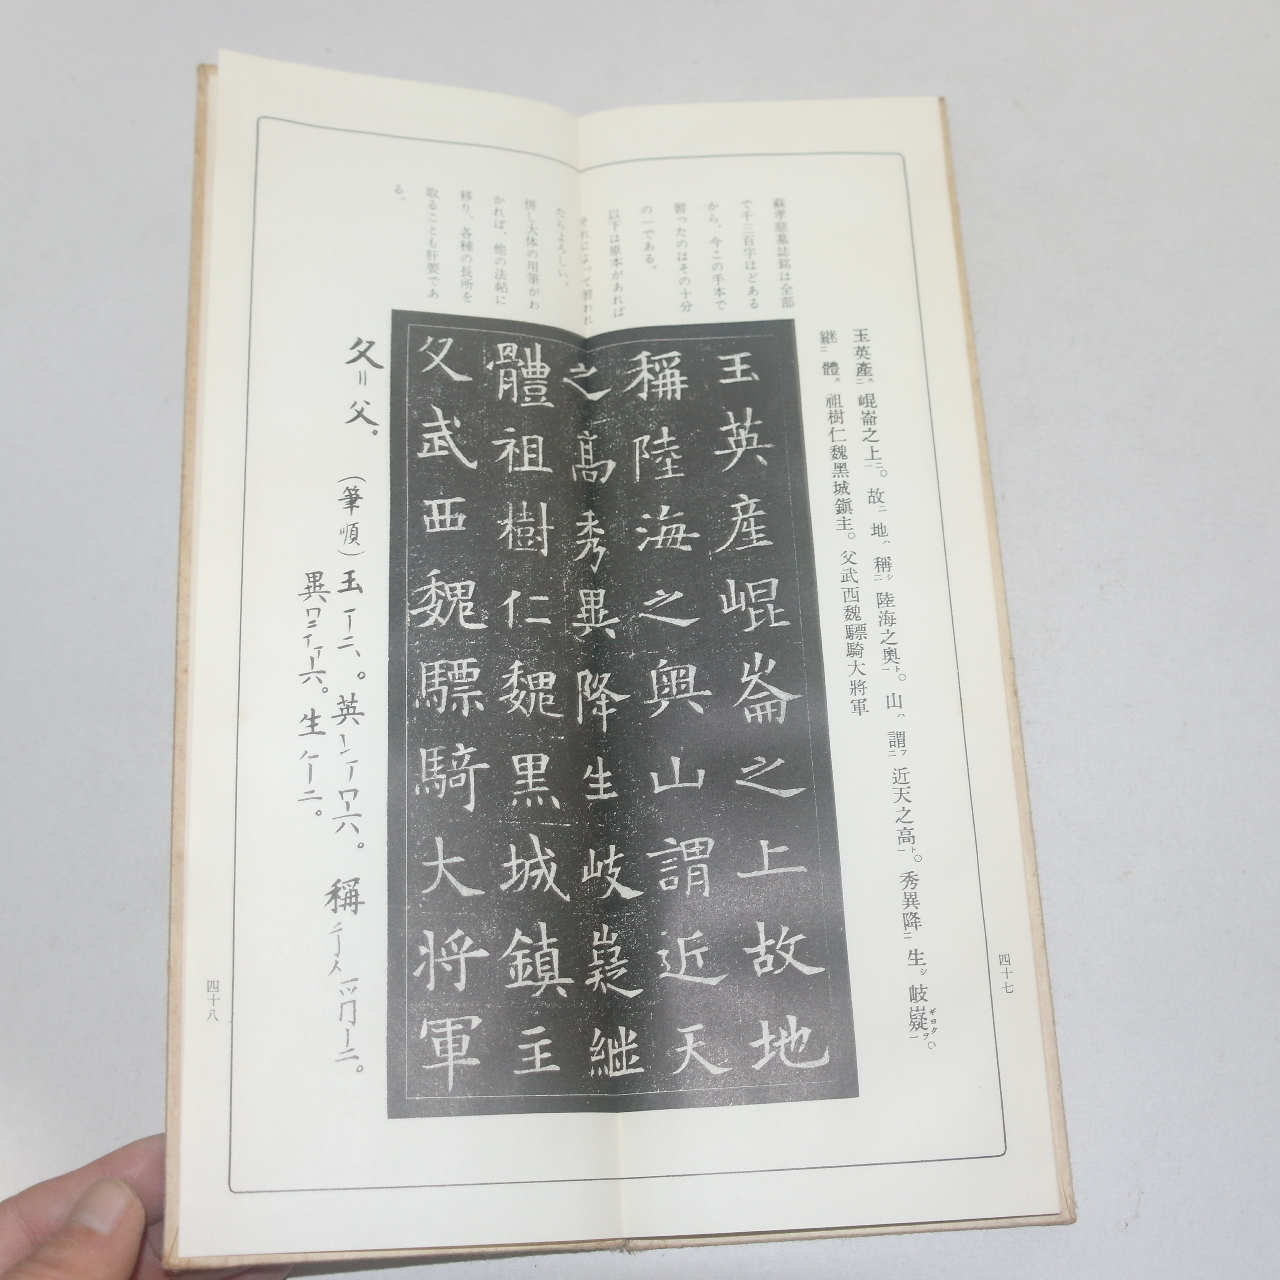 蘇孝慈墓誌銘は全部
で千三百字ほどある
から、今この手本で
習ったのはその十分
の一である。
以下は原本があれば
それによって習われ
たらよろしい。
併し大体の用筆がわ
かれば、他の法帖に
移り、各種の長所を
取ることも肝要であ
る。
玉英產ス二崐崙之上一。故ニ地ハ、稱シ二陸海之奧一ト。山ハ、謂フ二近天之高一ト。秀異降二生シ岐嶷一ギヨクヲ。
継ニ體ス。祖樹仁魏黑城鎭主。父武西魏驃騎大將軍
玉英産崐崙之上故地
稱陸海之奥山謂近天
之髙秀異降生岐嶷継
體祖樹仁魏黒城鎮主
父武西魏驃騎大将軍
父〃父。 (筆順) 玉一丅二、。英
異
生𠂉丨二。
稱
四十七
四十八